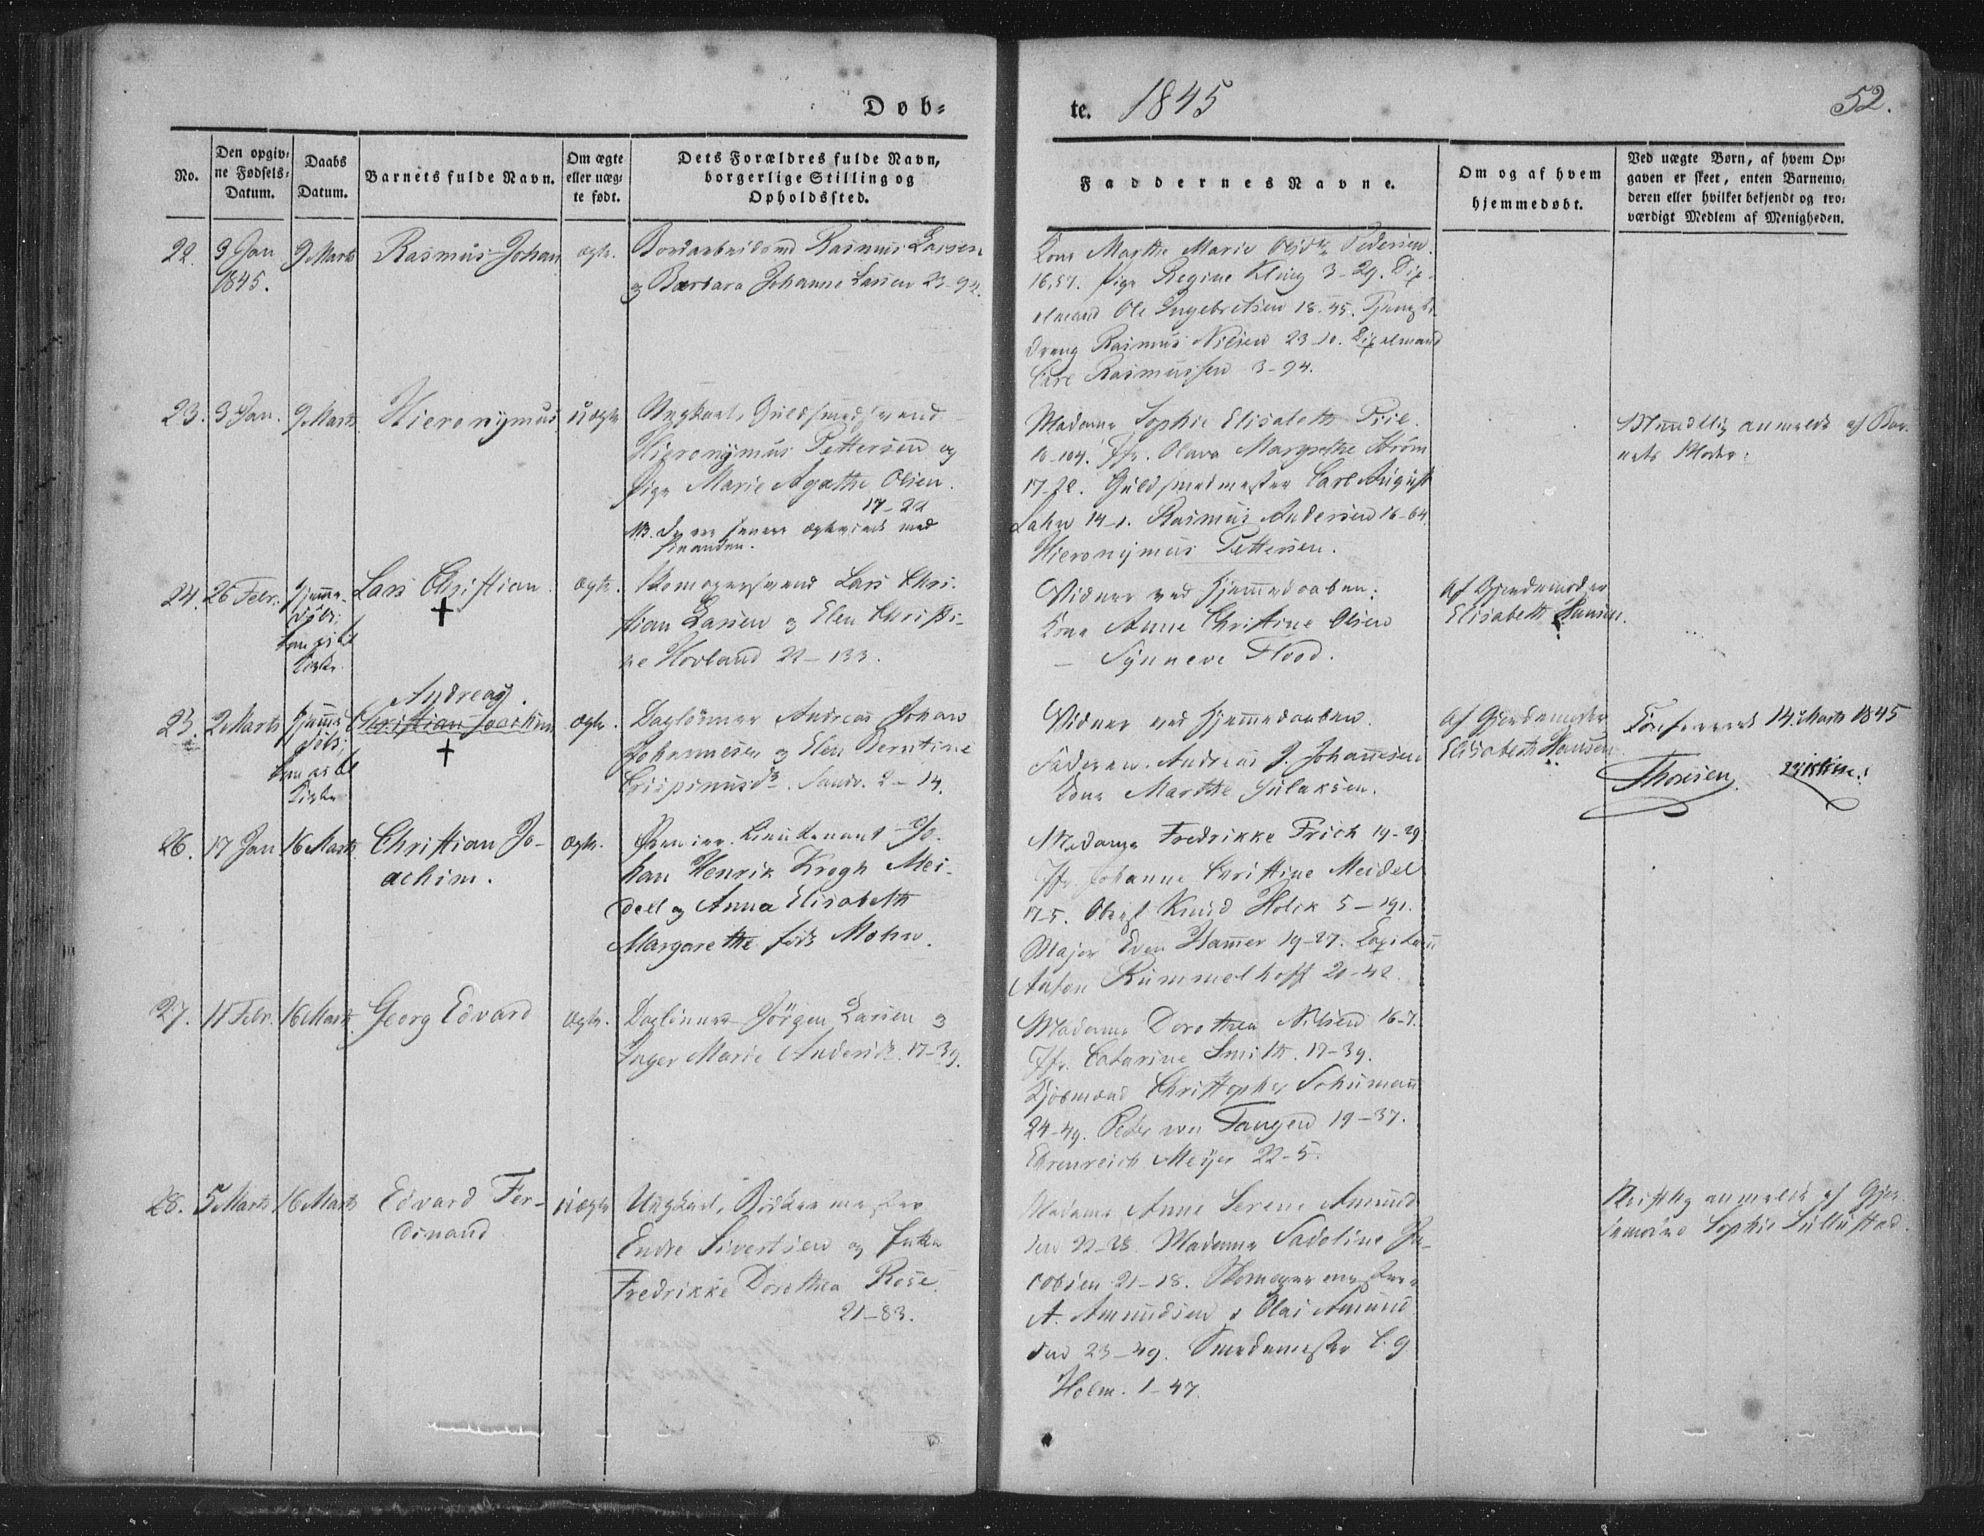 Døb=
te. 1845
52.
No.
Den opgiv=
ne Fødsels=
Datum.
Daabs
Datum.
Barnets fulde Navn.
Om ægte
eller uæg=
te født.
Dets Forældres fulde Navn,
borgerlige Stilling og
Opholdssted.
Faddernes Navne.
Om og af hvem
hjemmedøbt.
Ved uægte Børn, af hvem Op=
gaven er skeet, enten Barnemo=
deren eller hvilket bekjendt og tro=
værdigt Medlem af Menigheden.
22.
3 Jan
1845.
9 Marts
Rasmus Johan
ægte.
Rasmus Larsen
og Barbara Johanne Larsen 23-94.
Kone Marthe Marie Pedersen.
16,57. Pige Regine Kling 3-29.
Ole Ingebretsen 18-45.
dreng Rasmus Nilsen 23-10.
Rasmussen 3-94.
23.
3 Jan.
9 Marts
Hieronymus
uægte
Ungkarl, Guldsmedsvend
Hieronymus Pettersen og
Pige Marie Agathe Olsen.
17-22
NB. senere med
hinanden.
Madame Sophie Elisabeth Piil.
10-104. Jfr. Olava Margrethe Strøm
17-22. Guldsmedmester Carl August
14-1. Rasmus Andersen 16-64.
Hieronymus Pettersen.
Mundtlig anmeldt af Bar-
nets Moder.
24.
26 Febr.
hjemme-
døbt.
Lars Christian.
†
ægte.
Skomagersvend Lars Chri-
stian Larsen og Elen Christi-
ne Hovland 22-133.
Vidner ved Hjemmedaaben:
Kone Anne Christine Olsen
— Synneve Flood.
Af Gjordemoder
Elisabeth Hansen.
25.
2 Marts
hjemme
døbt.
Andreas.
Christian Joachim
†
ægte.
Daglønner Andreas Johan
Johannesen og Elen Berntine
Crispinusdr. Sandv. 2-14.
Vidner ved Hjemmedaaben.
Faderen Andreas J. Johannesen
Kone Marthe Isaksen.
Af Gjordemoder
Elisabeth Hansen
Confereret 14 Marts 1845
Thoresen
26.
17 Jan
16 Marts
Christian Jo-
achim.
ægte.
Premier Lieutenant Jo-
han Henrik Krogh Mei-
dell og Anna Elisabeth
Margarethe født Mohn.
Madame Fredrikke Frich 19-29
Jfr. Johanne Christine Meidel
17-5. Knud Holck 5-191.
Major Even Hammer 19-27. Capitain
Anton Rummelhoff 21-42.
27.
11 Febr.
16 Marts
Georg Edvard
ægte.
Daglønner Jörgen Larsen og
Inger Marie Andersdr. 17-39.
Madame Dorothea Nilsen 16-7.
Jfr. Catarine Smith. 17-39.
Kjøbmand Christopher Schumann
24-49. Peder von Tangen 19-37.
Ehrenreich Meyer 22-5.
28.
5 Marts
16 Marts
Edvard Fer-
dinand
uægte
Ungkarl, Bødkermester
Endre Sivertsen og Enke
Fredrikke Dorothea Rose.
21-83.
Madame Anne Serene Amund-
sen 22-28. Madame Sadoline Ja-
cobsen 21-18. Skomagermester
A. Amundsen & Olai Amund-
sen 23-49. Smedemester C. G
Holm. 1-47.
Skriftlig anmeldt af Gjor-
demoder Sophie